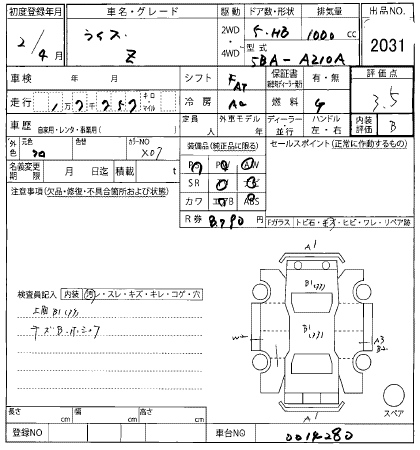 初度登録年月
車名・グレード
駆動
ドア数・形状
排気量
出品NO.
2/4月
ライズ
Z
2WD・4WD
5.HB
1000 cc
2031
型式
5BA-A210A
車検 年 月
シフト FAT
保証書 有・無
評価点
3.5
走行 1万7千257 キロ・マイル
冷房 AC
燃料 G
車歴 自家用・レンタ・事業用( )
定員 人
外車モデル 年
ディーラー・並行
ハンドル 左・右
内装評価 B
外色 元色 クロ
色替
カラーNO X07
装備品(純正品に限る)
セールスポイント(正常に作動するもの)
PS PW AW
名義変更期限 月 日迄
積載 t
SR
注意事項(欠品・修復・不具合箇所および状態)
カワ ABS
R券 8,790 円
Fガラス・トビ石・キズ・ヒビ・ワレ・リペア跡
A1
検査員記入 内装 汚レ・スレ・キズ・キレ・コゲ・穴
B1
W2
A3
B2
A1
スペア
長さ cm 幅 cm 高さ cm
登録NO
車台NO
0014280